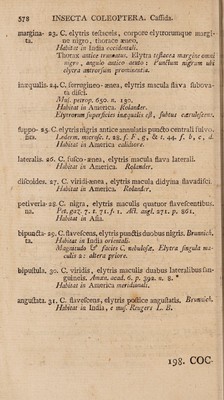 578 INSECTA COLEOPTERA. Cassida.
margina- 23. C. elytris testaceis, corpore elytrorumque margi-
ta. ne nigro, thorace æneo.
Habitat in India occidentali.
Thorax antice truncatus. Elytra testacea margine omni
nigro, angulo antico acuto: Punctum nigrum ubi
elytra antrorsum prominentia.
inæqualis. 24. C. ferrugineo-ænea, elytris macula flava subova-
ta disci.
Mus. petrop. 650. n. 130.
Habitat in America. Rolander.
Elytrorum superficies inæqualis est, subtus cærulescens.
25. C. elytris nigris antice annulatis puncto centrali fulvo.
Habitat in America calidiore.
lateralis. 26. C. fusco-ænea, elytris macula flava laterali.
Habitat in America. Rolander.
discoides. 27. C. viridi-ænea, elytris macula didyma flavadisci.
Habitat in America. Rolander.
petiveria- 28. C. nigra, elytris maculis quatuor flavescentibus.
na. Pet. gaz. 7. t. 71. f. 1. Act. angl. 271. p. 861.
Habitat in Asia.
bipuncta- 29. C. flavescens, elytris punctis duobus nigris. Brunnich.
ta. Habitat in India orientali.
Magnitudo & facies C. nebulosæ. Elytra singula ma-
culis 2: altera priore.
bipustula. 30. C. viridis, elytris maculis duabus lateralibus san-
guineis. Amœn. acad. 6. p. 392. n. 8. *
Habitat in America meridionali.
angustata. 31. C. flavescens, elytris postice angustatis. Brunnich.
Habitat in India, e mus. Reugers L. B.
198. COC-